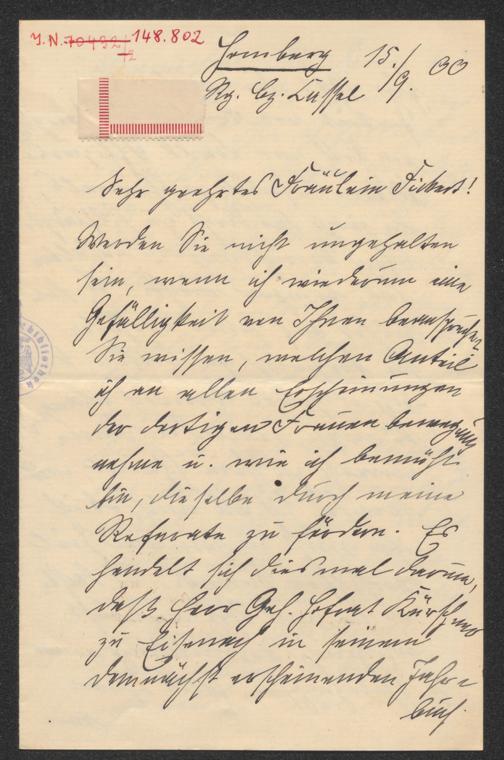 I.N. 70492/72 148.802
Homberg 15./9. 00
Rg. bz. Cassel
Sehr geehrtes Fräulein Fickert!
Werden Sie nicht ungehalten
sein, wenn ich wiederum eine
Gefälligkeit von Ihnen beanspruche.
Sie wissen, welchen Anteil
ich an allen Erscheinungen
der dortigen Frauenbewegung
nehme u. wie ich bemüht
bin, dieselbe durch meine
Referate zu fördern. Es
handelt sich dies mal darum,
daß Herr Geh. Hofrat Kürschner
zu Eisenach in seinem
demnächst erscheinenden Jahr=
buch